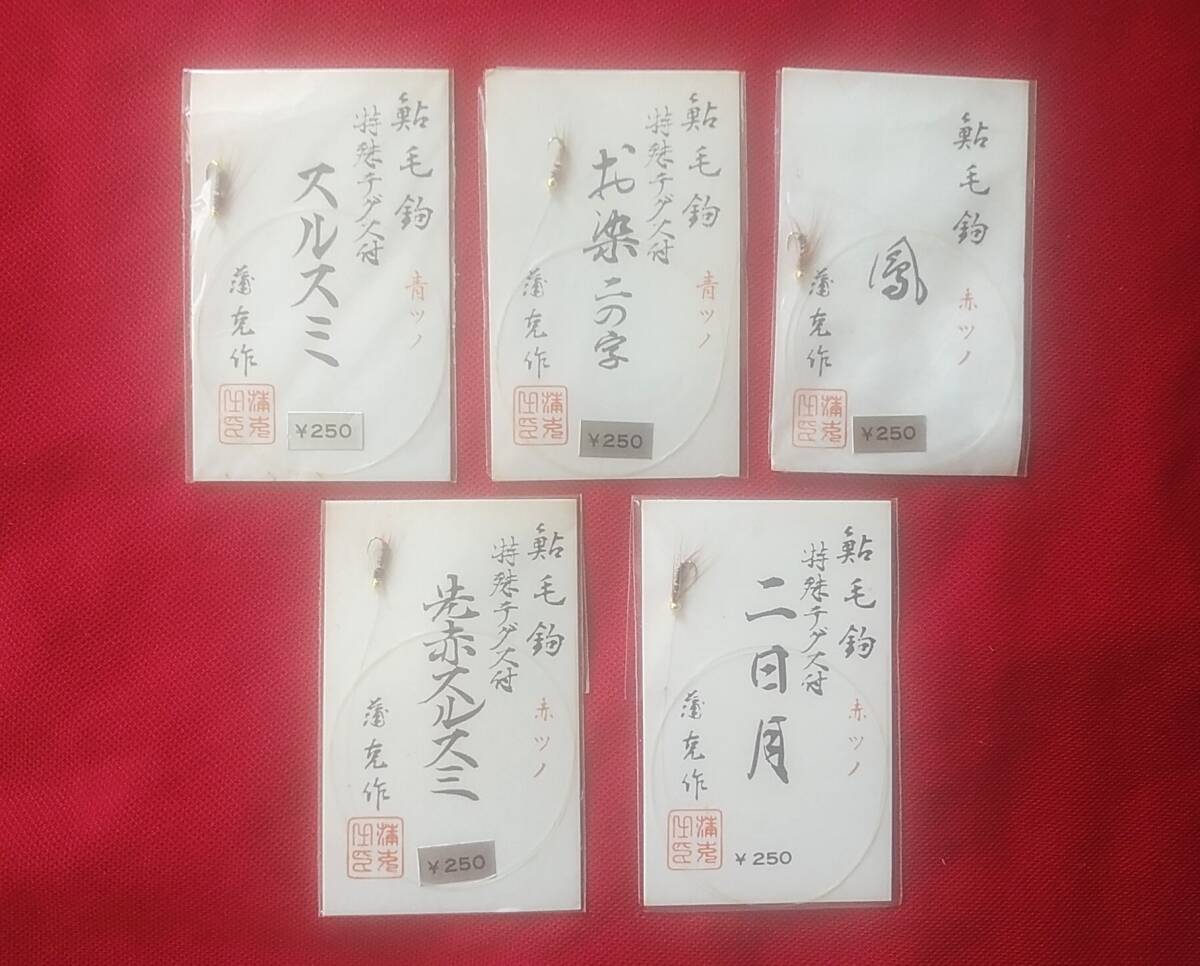 鮎毛鈎
特殊テグス付
青ツノ
スルスミ
蒲克作
¥250
鮎毛鈎
特殊テグス付
青ツノ
お染二の字
蒲克作
¥250
鮎毛鈎
赤ツノ
鳳
蒲克作
¥250
鮎毛鈎
特殊テグス付
赤ツノ
先赤スルスミ
蒲克作
¥250
鮎毛鈎
特殊テグス付
赤ツノ
二日月
蒲克作
¥250